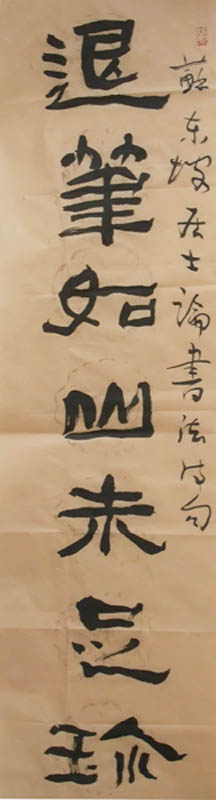 蘇东坡居士論書法诗句
退筆如山未足珍